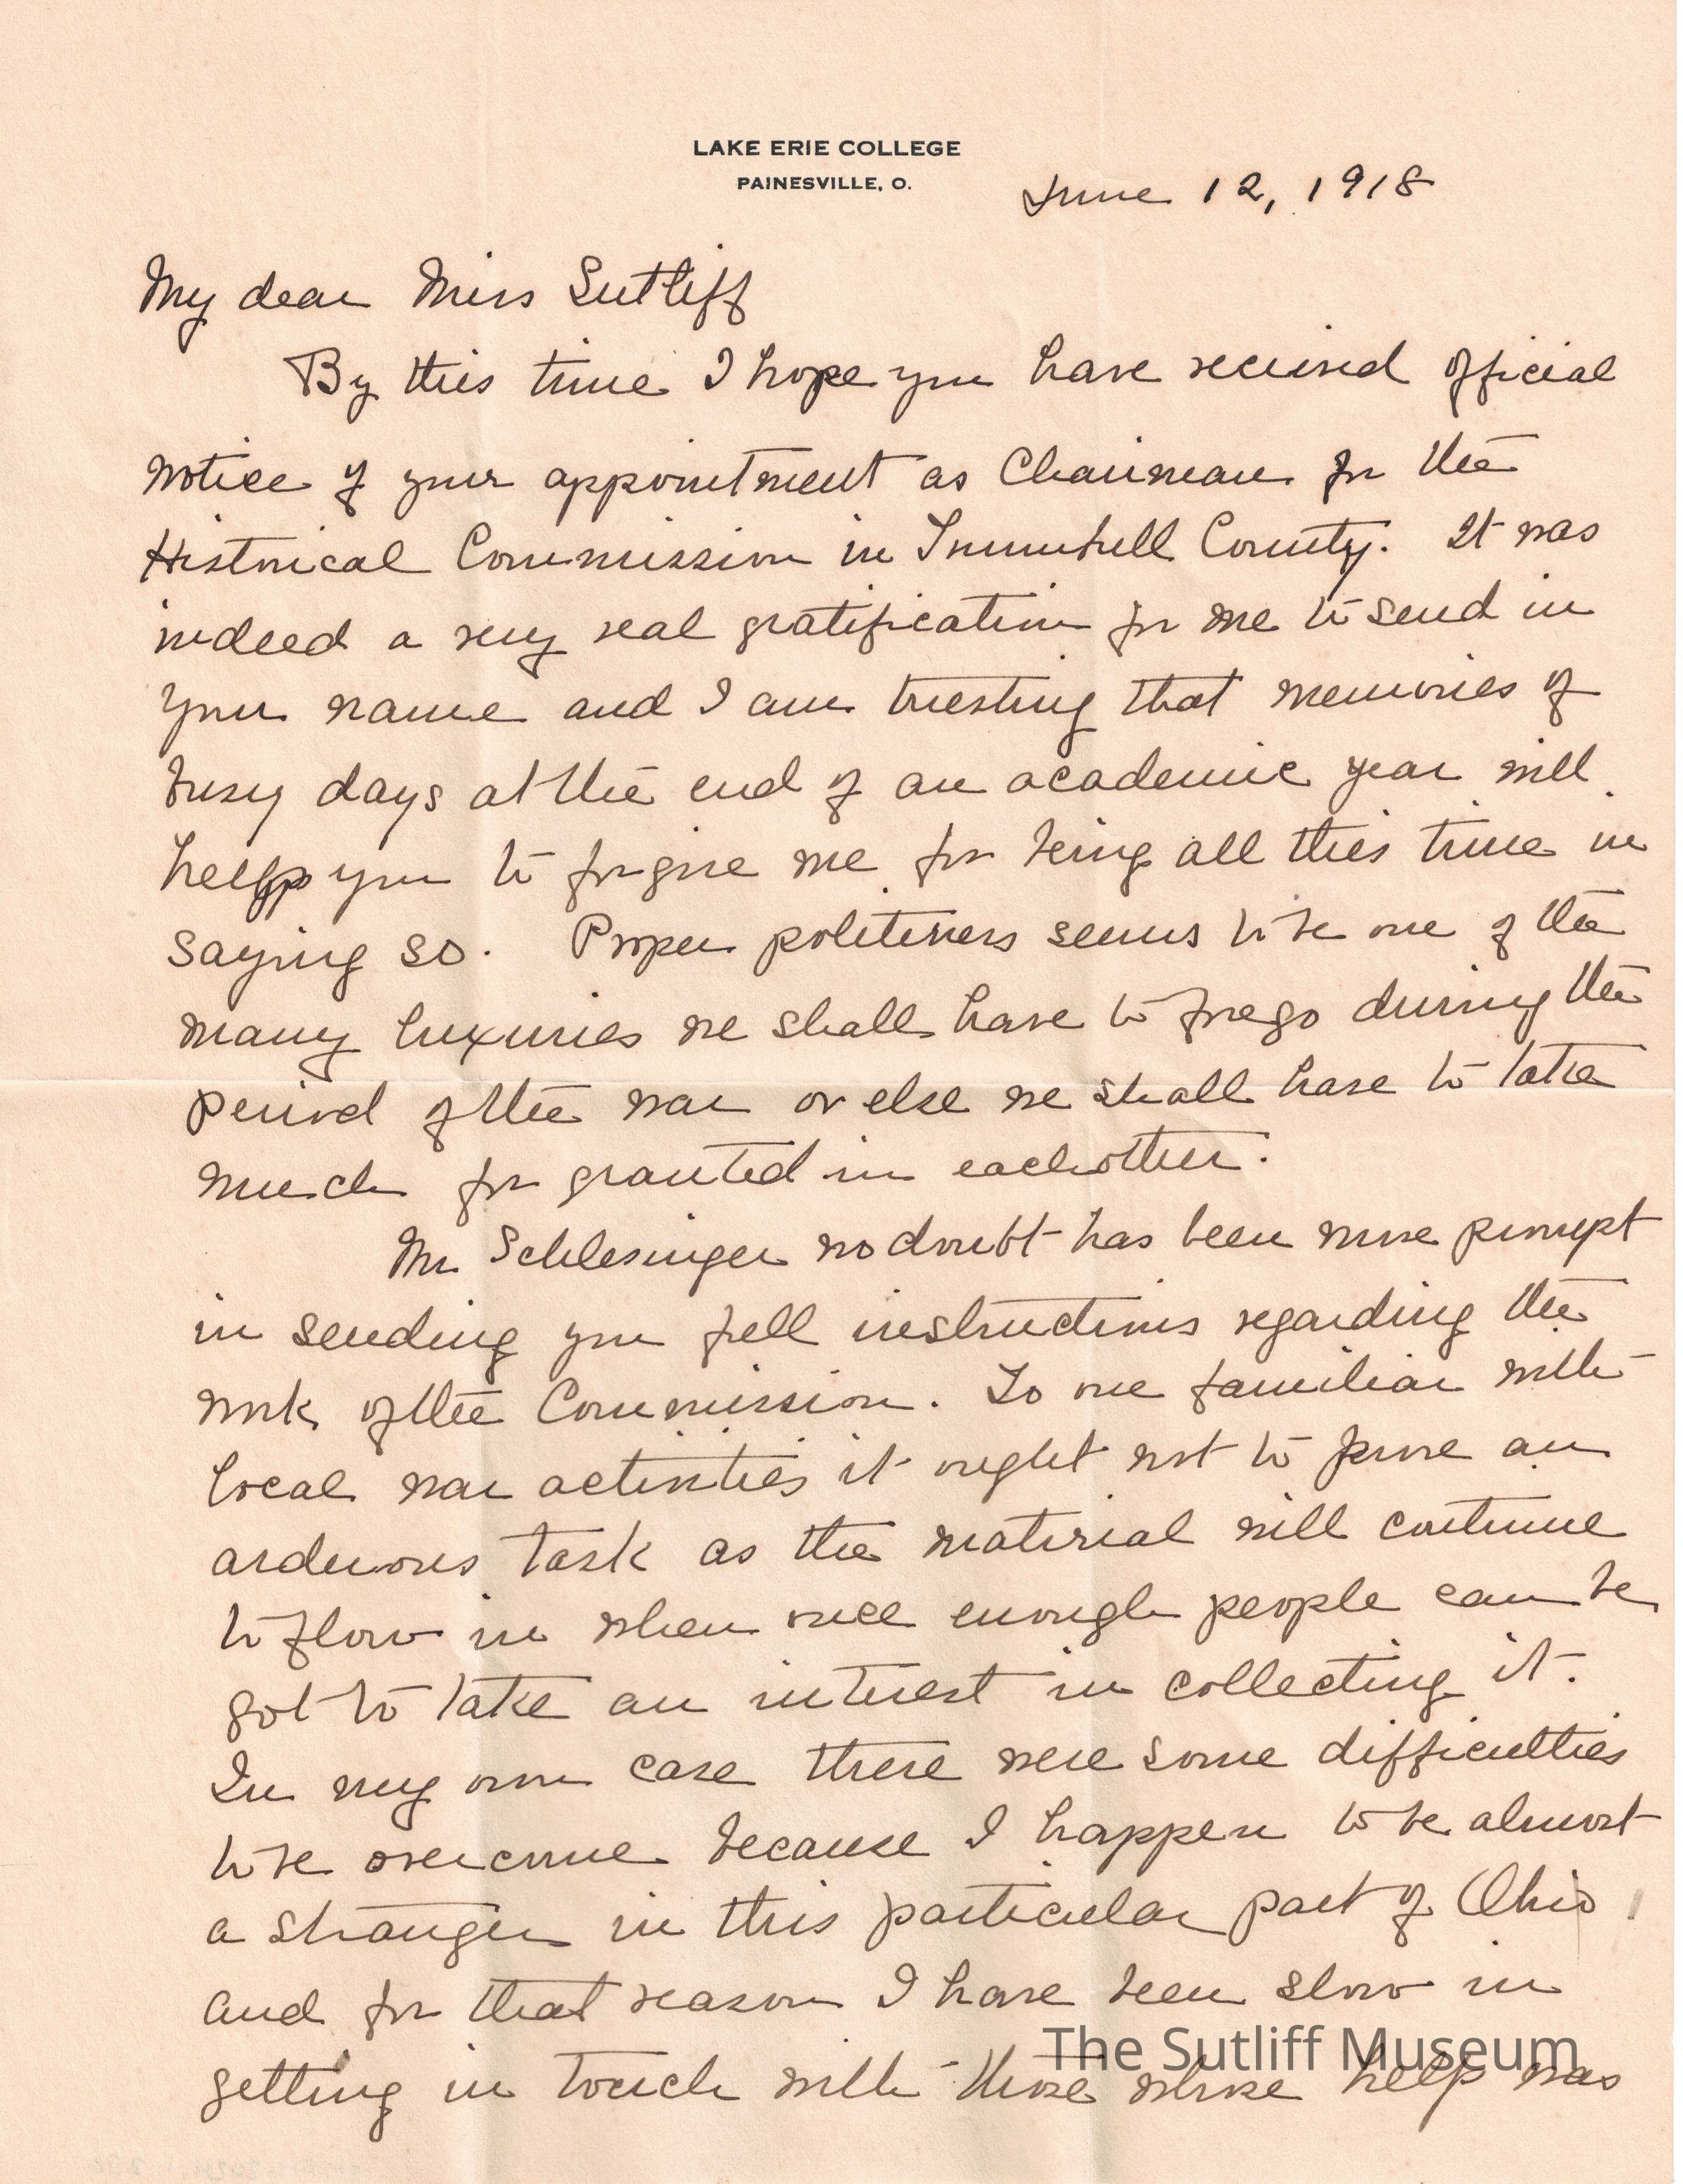 LAKE ERIE COLLEGE
PAINESVILLE, O.
June 12, 1918
My dear Miss Sutliff
By this time I hope you have received official
notice of your appointment as Chairman for the
Historical Commission in Trumbull County. It was
indeed a very real gratification for me to send in
your name and I am trusting that memories of
busy days at the end of an academic year will
help you to forgive me for being all this time in
saying so. Proper politeness seems to be one of the
many luxuries we shall have to forego during the
period of the war or else we shall have to take
much for granted in each other.
Mr. Schlesinger no doubt has been more prompt
in sending you full instructions regarding the
work of the Commission. To one familiar with
local war activities it ought not to prove an
arduous task as the material will continue
to flow in when once enough people can be
got to take an interest in collecting it.
In my own case there were some difficulties
to be overcome because I happen to be almost
a stranger in this particular part of Ohio
and for that reason I have been slow in
getting in touch with those whose help was
The Sutliff Museum